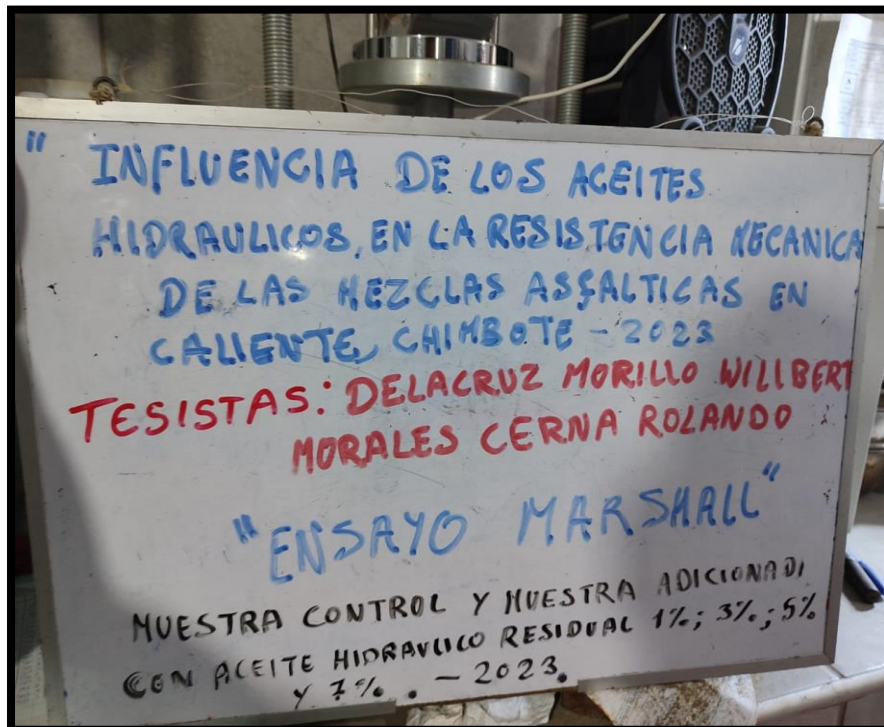 " INFLUENCIA DE LOS ACEITES
HIDRAULICOS, EN LA RESISTENCIA MECANICA
DE LAS MEZCLAS ASFALTICAS EN
CALIENTE, CHIMBOTE - 2023
TESISTAS: DELACRUZ MORILLO WILLBERT
MORALES CERNA ROLANDO
"ENSAYO MARSHALL"
MUESTRA CONTROL Y MUESTRA ADICIONADA
CON ACEITE HIDRAULICO RESIDUAL 1%; 3%; 5%
Y 7%. - 2023.